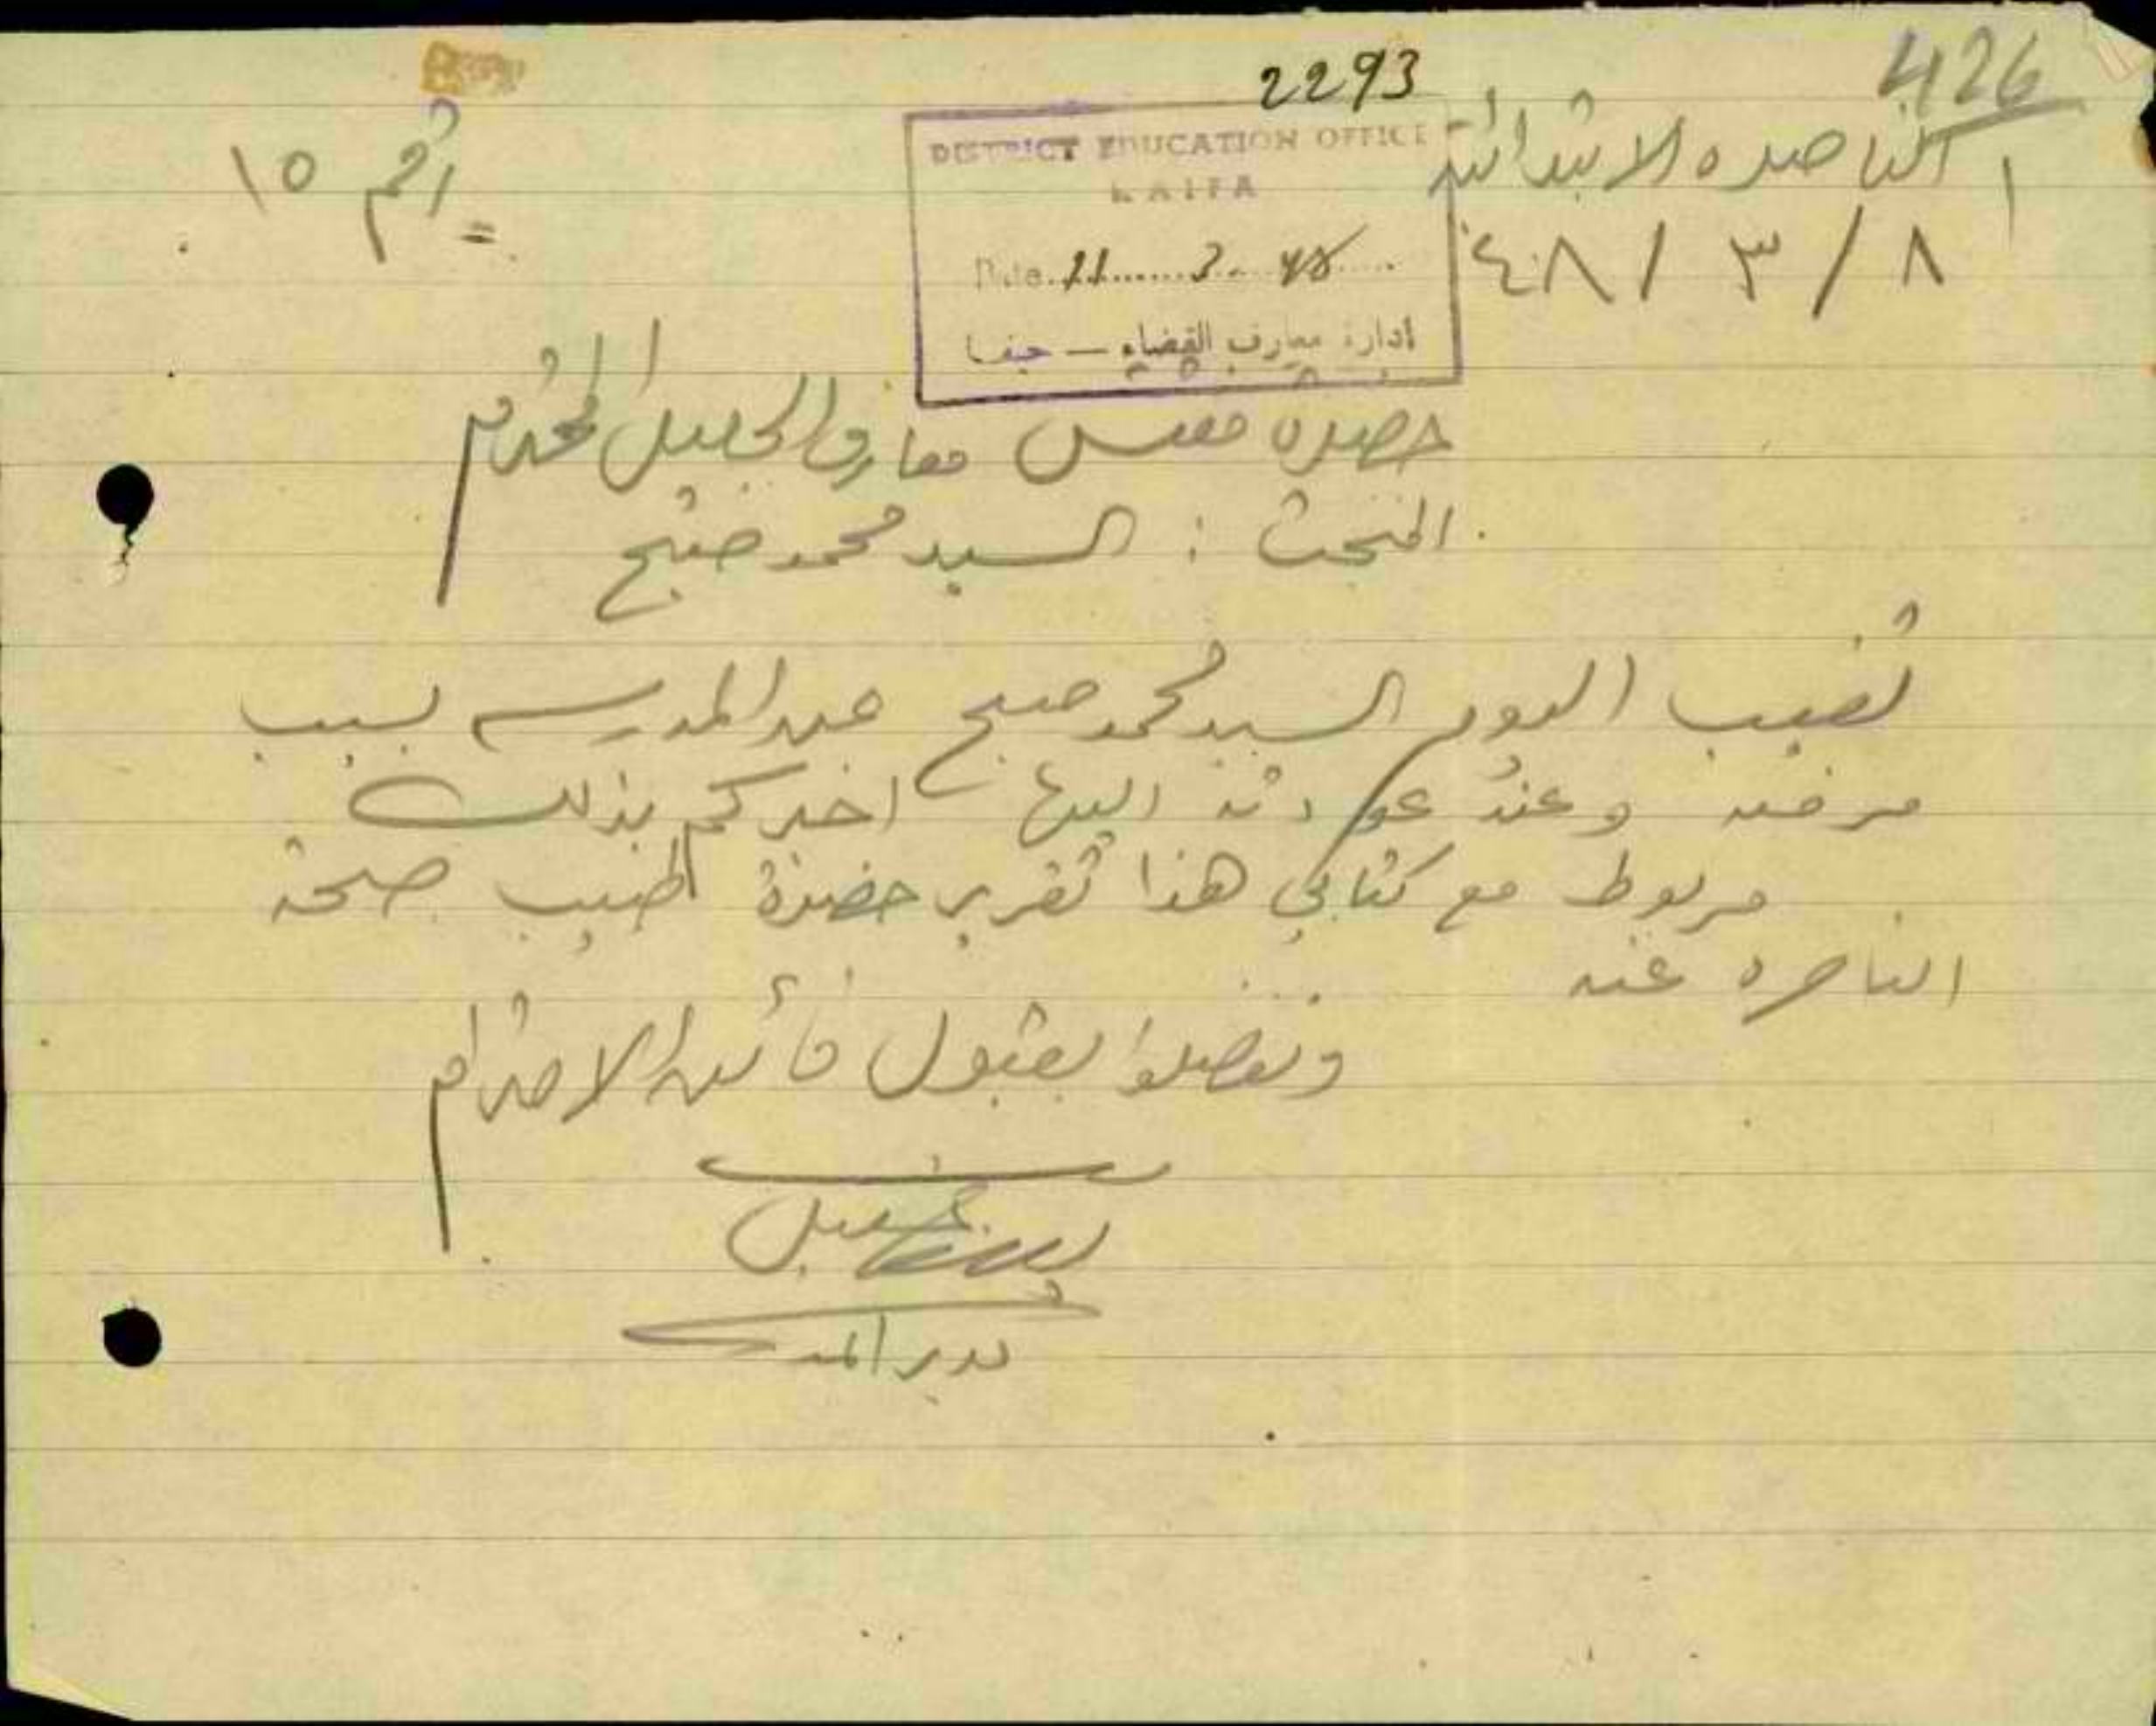 426
2293
الناصره الابتدائية
رقم ١٥
٨ / ٣ / ٤٨
DISTRICT EDUCATION OFFICE
HAIFA
Date 11 3 48
أدارة معارف القضاء - حيفا
حضرة مفتش معارف الجليل المحترم
المبحث : السيد محمد صبح
تغيب اليوم السيد محمد صبح عن المدرسه بسبب
مرضه وعند عودته اليها اخبركم بذلك
مربوط مع كتابي هذا تقرير حضرة طبيب صحة
الناصره عنه
وتفضلوا بقبول فائق الاحترام
مدير المدرسة